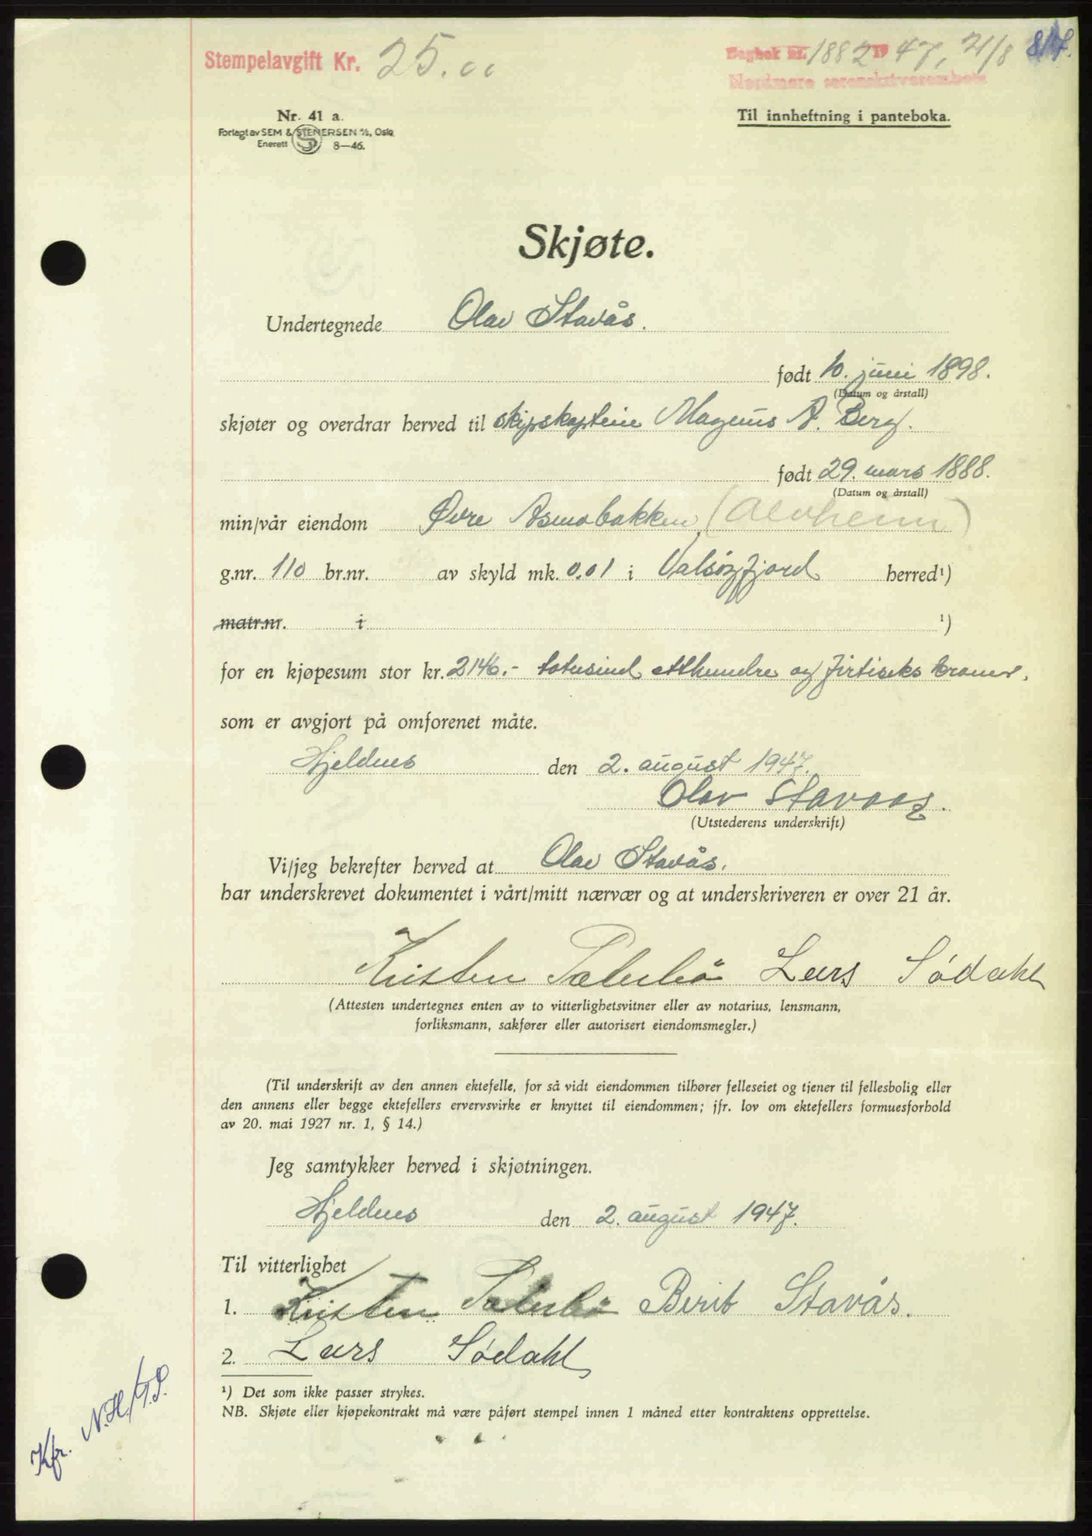 Stempelavgift Kr. 25.00
Dagbok nr. 1882 1947, 21/8 817.
Nordmøre sorenskriverembete
Nr. 41 a.
Forlagt av SEM & STENERSEN A/S, Oslo
Enerett 8-46.
Til innheftning i panteboka.
Skjøte.
Undertegnede Olav Stavås.
født 10. juni 1898.
(Datum og årstall)
skjøter og overdrar herved til skipskaptein Magnus A. Berg.
født 29. mars 1888.
(Datum og årstall)
min/vår eiendom Øvre Asmobakken (Alvheim)
g.nr. 110 br.nr. av skyld mk. 0.01 i Valsøyfjord herred¹)
matr.nr. i ¹)
for en kjøpesum stor kr. 2146.- totusind etthundre og firtiseks kroner.
som er avgjort på omforenet måte.
Hjeldnes den 2. august 1947.
Olav Stavaas.
(Utstederens underskrift)
Vi/jeg bekrefter herved at Olav Stavås.
har underskrevet dokumentet i vårt/mitt nærvær og at underskriveren er over 21 år.
Kristen Lars Sødahl
(Attesten undertegnes enten av to vitterlighetsvitner eller av notarius, lensmann,
forliksmann, sakfører eller autorisert eiendomsmegler.)
(Til underskrift av den annen ektefelle, for så vidt eiendommen tilhører felleseiet og tjener til fellesbolig eller
den annens eller begge ektefellers ervervsvirke er knyttet til eiendommen; jfr. lov om ektefellers formuesforhold
av 20. mai 1927 nr. 1, § 14.)
Jeg samtykker herved i skjøtningen.
Hjeldnes den 2. august 1947.
Til vitterlighet
1. Kristen Berit Stavås.
2. Lars Sødahl
¹) Det som ikke passer strykes.
NB. Skjøte eller kjøpekontrakt må være påført stempel innen 1 måned etter kontraktens opprettelse.
Kfr. N.H/T.S.